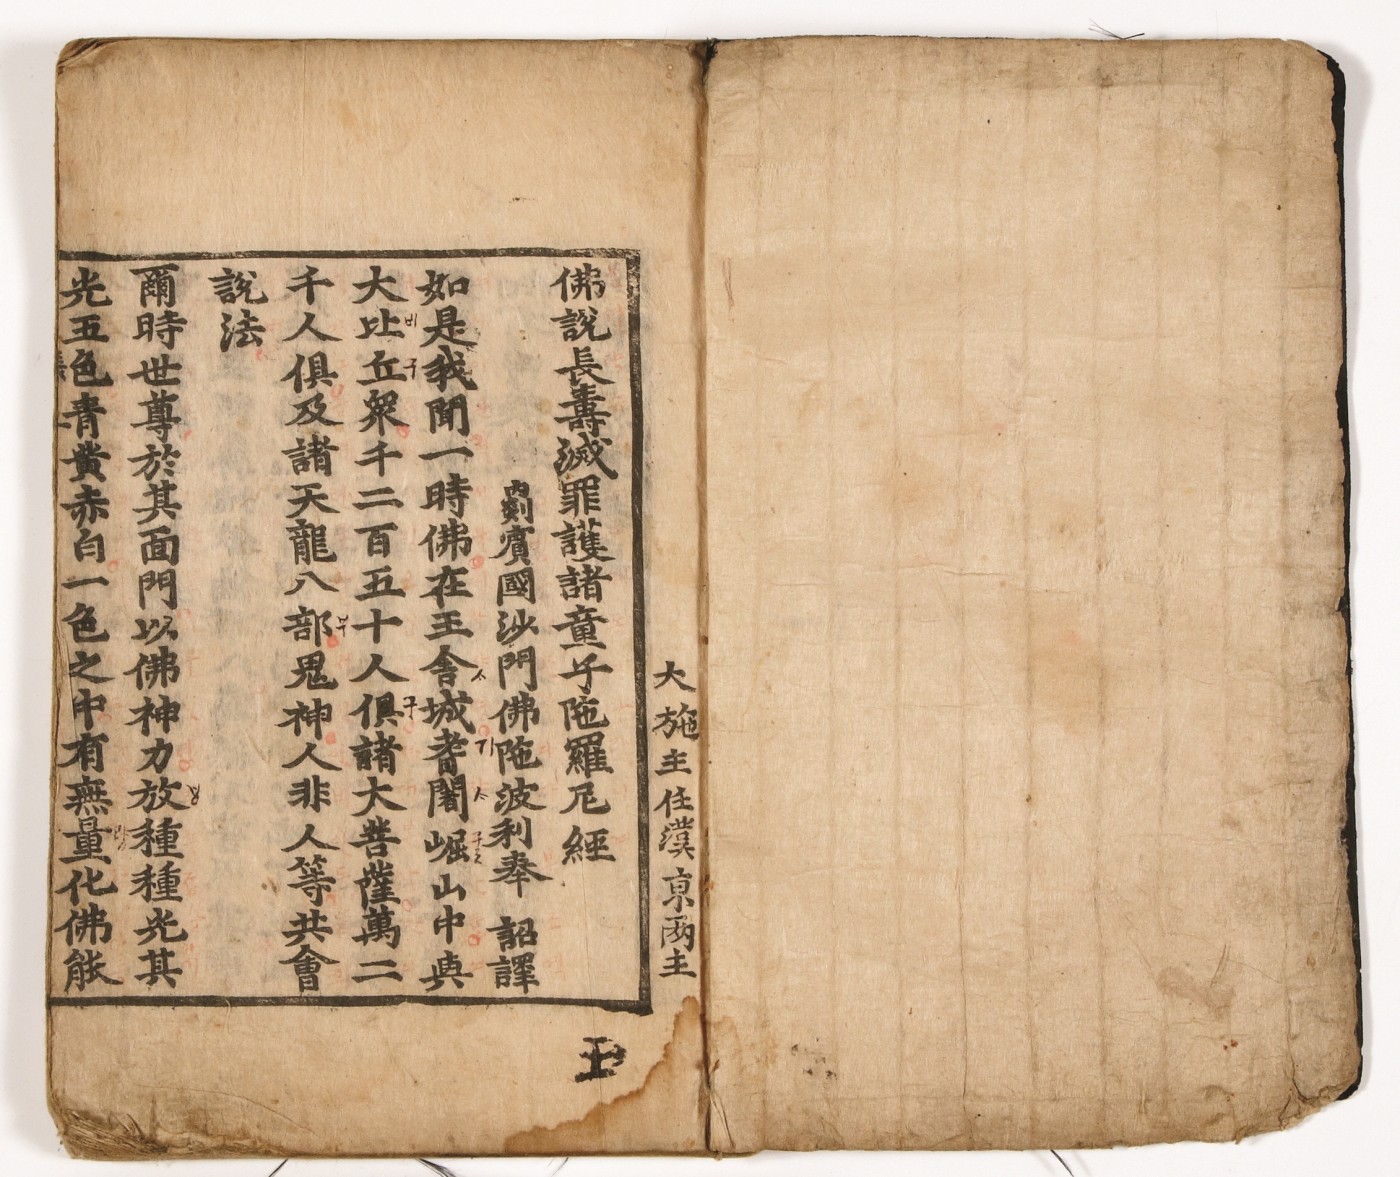 大施主任漢京兩主
佛說長壽滅罪護諸童子陁羅尼經
罽賓國沙門佛陁波利奉 詔譯
如是我聞一時佛在王舍城耆闍崛山中與
大比丘衆千二百五十人俱諸大菩薩萬二
千人俱及諸天龍八部鬼神人非人等共會
說法
爾時世尊於其面門以佛神力放種種光其
光五色青黃赤白一色之中有無量化佛能
비
구
부
구
사
기
사
굴